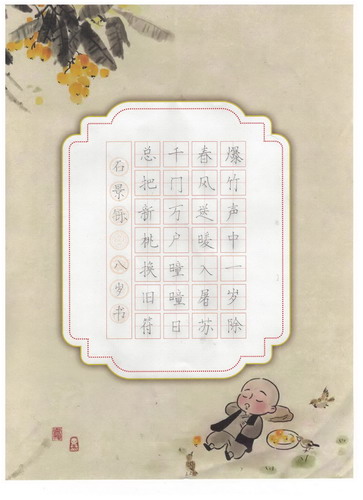 爆竹声中一岁除
春风送暖入屠苏
千门万户瞳瞳日
总把新桃换旧符
石景 八岁书